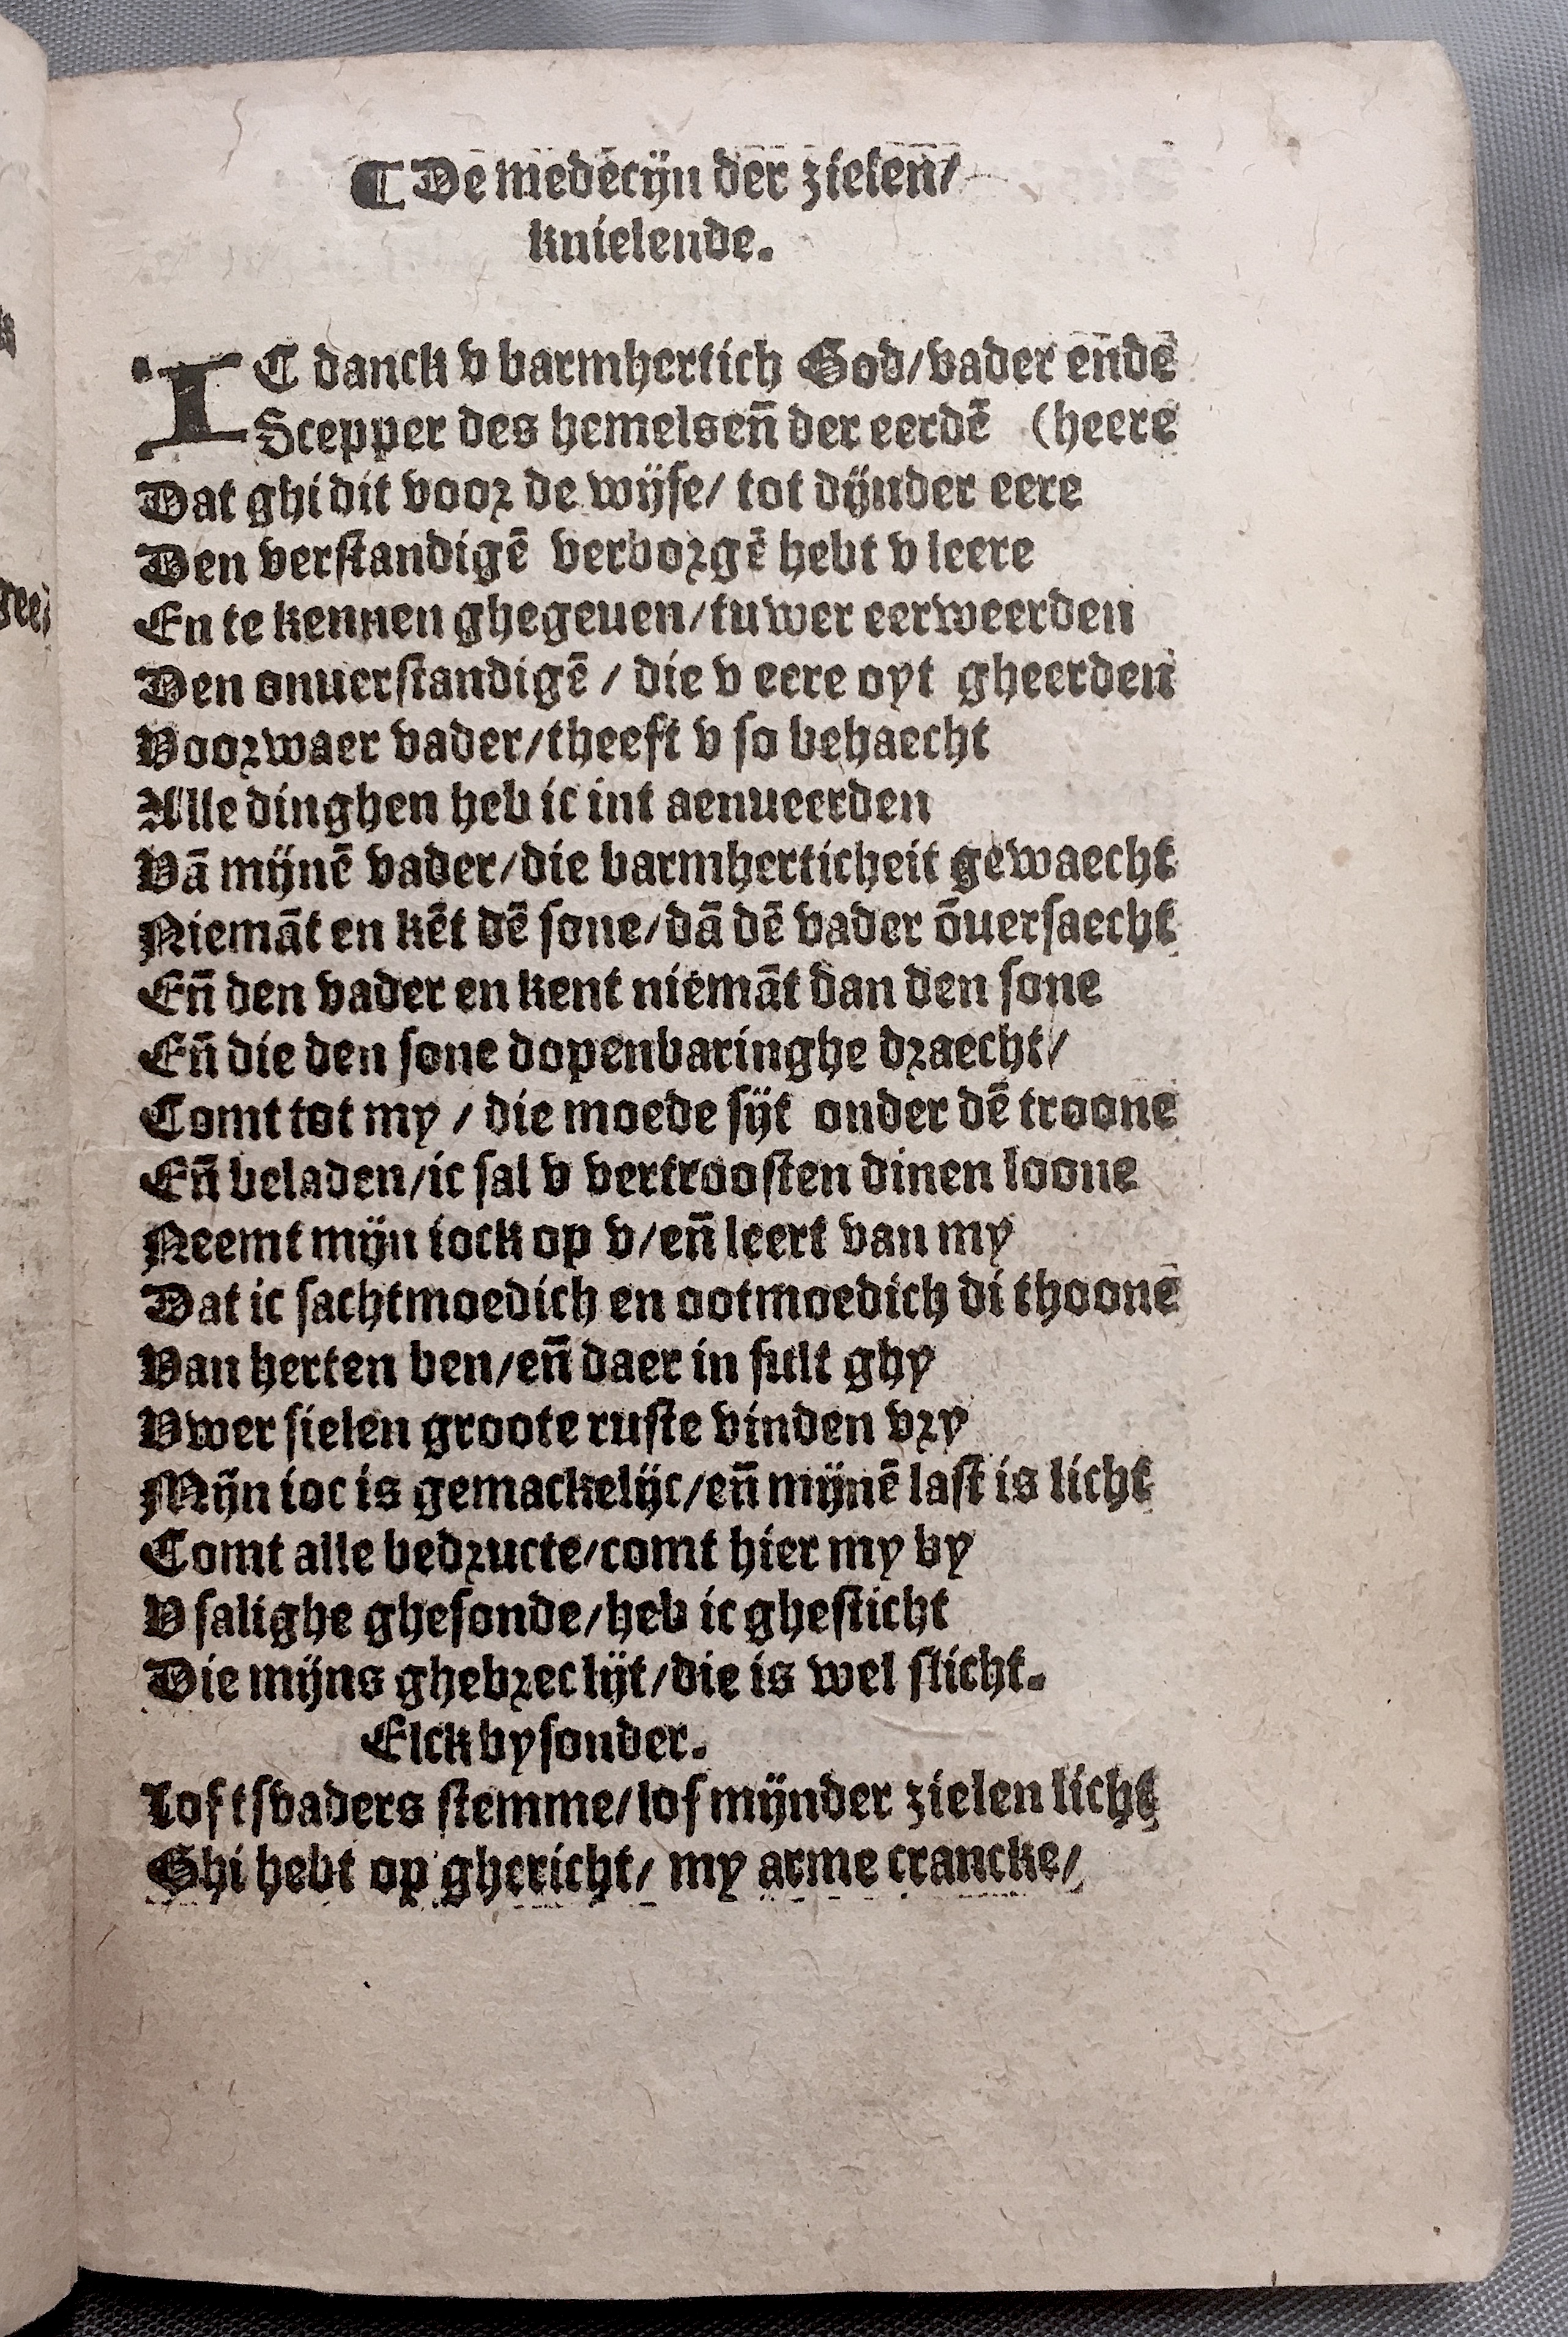 ¶ De medecijn der zielen/
knielende.
IC danck v barmhertich God/vader ende
Scepper des hemelsen̄ der eerdē (heere
Dat ghi dit voor de wijse/ tot dijnder eere
Den verstandigē verborgē hebt v leere
En te kennen ghegeuen/tuwer eerweerden
Den onuerstandigē / die v eere oyt gheerden
Voorwaer vader/theeft v so behaecht
Alle dinghen heb ic int aenueerden
Vā mijnē vader/die barmherticheit gewaecht
Niemāt en kēt dē sone/dā dē vader ōuersaecht
En̄ den vader en kent niemāt dan den sone
En̄ die den sone dopenbaringhe draecht/
Comt tot my / die moede sijt onder dē troone
En̄ beladen/ic sal v vertroosten dinen loone
Neemt mijn iock op v/en̄ leert van my
Dat ic sachtmoedich en ootmoedich di thoone
Van herten ben/en̄ daer in sult ghy
Vwer sielen groote ruste vinden vry
Mijn ioc is gemackelijc/en̄ mijnē last is licht
Comt alle bedructe/comt hier my by
V salighe ghesonde/heb ic ghesticht
Die mijns ghebrec lijt/die is wel slicht.
Elck bysonder.
Lof tsvaders stemme/lof mijnder zielen licht
Ghi hebt op ghericht/ my arme crancke/